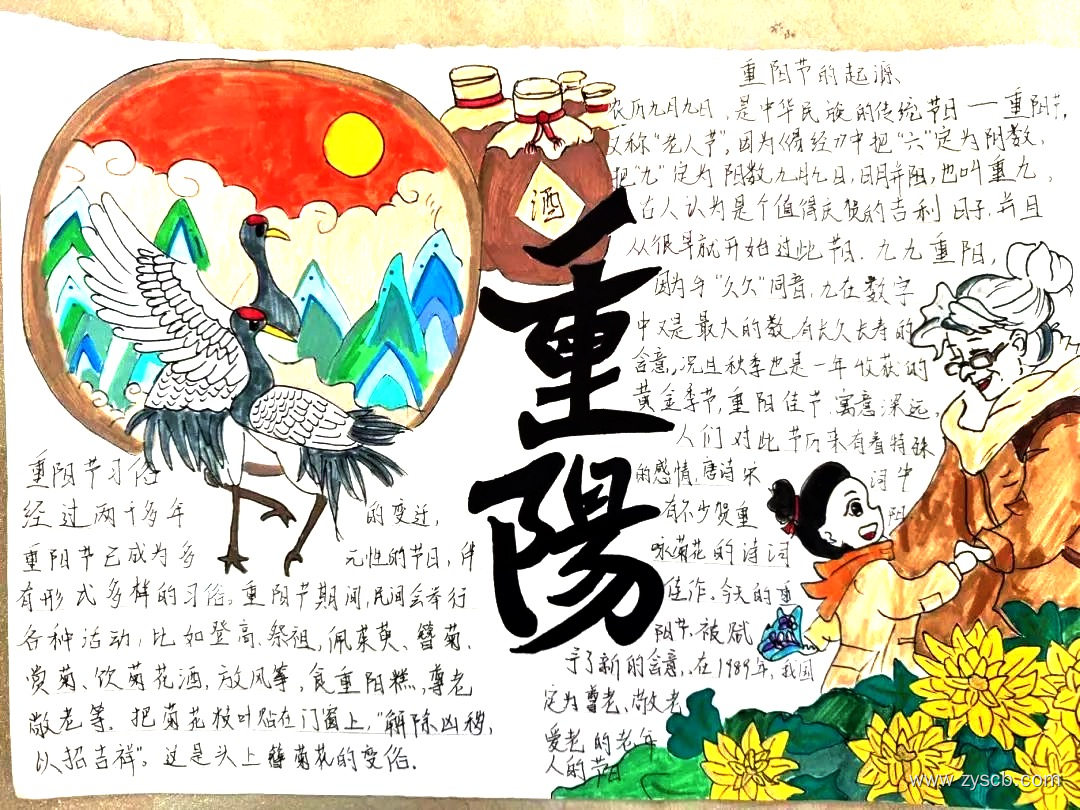 重阳节的起源
农历九月九日,是中华民族的传统节日一重阳节,
又称"老人节",因为《易经》中把"六"定为阴数,
把"九"定为阳数,九月九日,日月并阳,也叫重九,
古人认为是个值得庆贺的吉利日子,并且
从很早就开始过此节日.九九重阳,
因为与"久久"同音,九在数字
中又是最大的数,有长久长寿的
含意,况且秋季也是一年收获的
黄金季节,重阳佳节,寓意深远,
人们对此节历来有着特殊
的感情,唐诗宋词中
有不少贺重阳
咏菊花的诗词
佳作。今天的重
阳节,被赋
予了新的含意,在1989年,我国
定为尊老、敬老
爱老的老年
人的节日
酒
重陽
重阳节习俗
经过两千多年的变迁,
重阳节已成为多元性的节日,伴
有形式多样的习俗。重阳节期间,民间会举行
各种活动,比如登高、祭祖,佩茱萸、簪菊、
赏菊、饮菊花酒,放风筝,食重阳糕,尊老
敬老等。把菊花枝叶贴在门窗上,"解除凶秽,
以招吉祥"。这是头上簪菊花的变俗.
www.zyscb.com